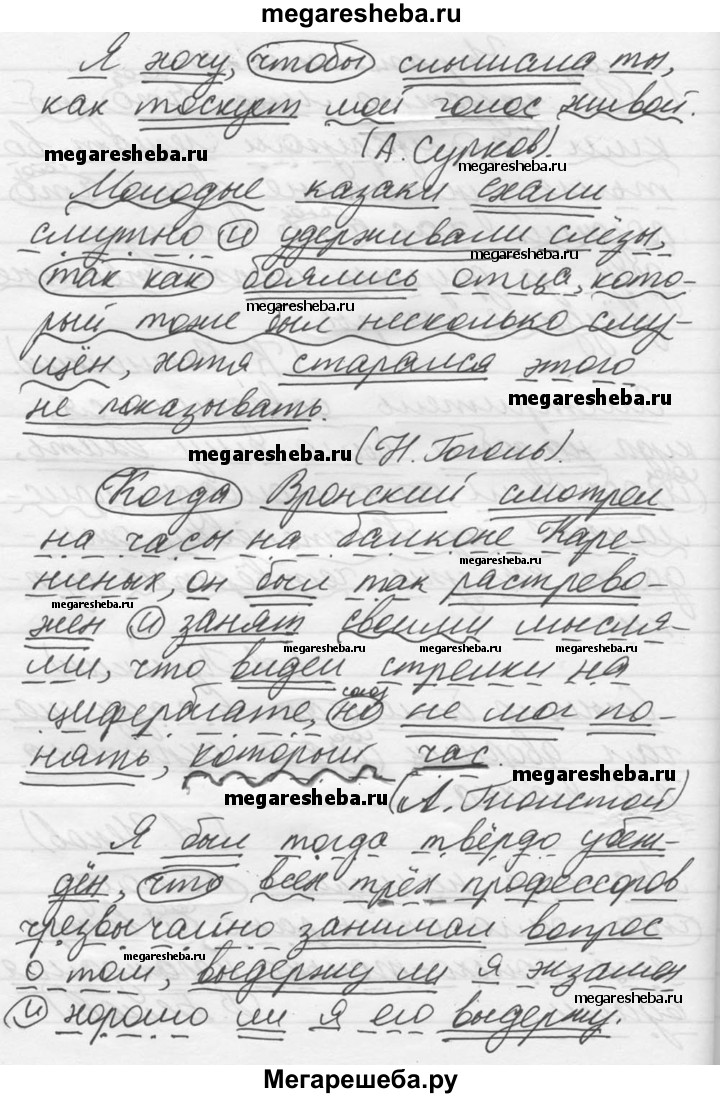 megaresheba.ru
Я хочу, чтобы слышала ты,
как тоскует мой голос живой.
megaresheba.ru (А. Сурков). megaresheba.ru
Молодые казаки ехали
смутно и удерживали слёзы,
megaresheba.ru
так как боялись отца, кото-
megaresheba.ru
рый тоже был несколько сму-
щён, хотя старался этого
не показывать. megaresheba.ru
megaresheba.ru (Н. Гоголь).
Когда Вронский смотрел
на часы на балконе Каре-
megaresheba.ru
ниных, он был так растрево-
megaresheba.ru
жен и занят своими мысля-
megaresheba.ru megaresheba.ru
ми, что видел стрелки на
союз
циферблате, но не мог по-
нять, который час. megaresheba.ru
megaresheba.ru (Л. Толстой)
Я был тогда твёрдо убеж-
дён, что всех трёх профессоров
чрезвычайно занимал вопрос
megaresheba.ru
о том, выдержу ли я экзамен
megaresheba.ru
и хорошо ли я его выдержу.
Мегарешеба.ру